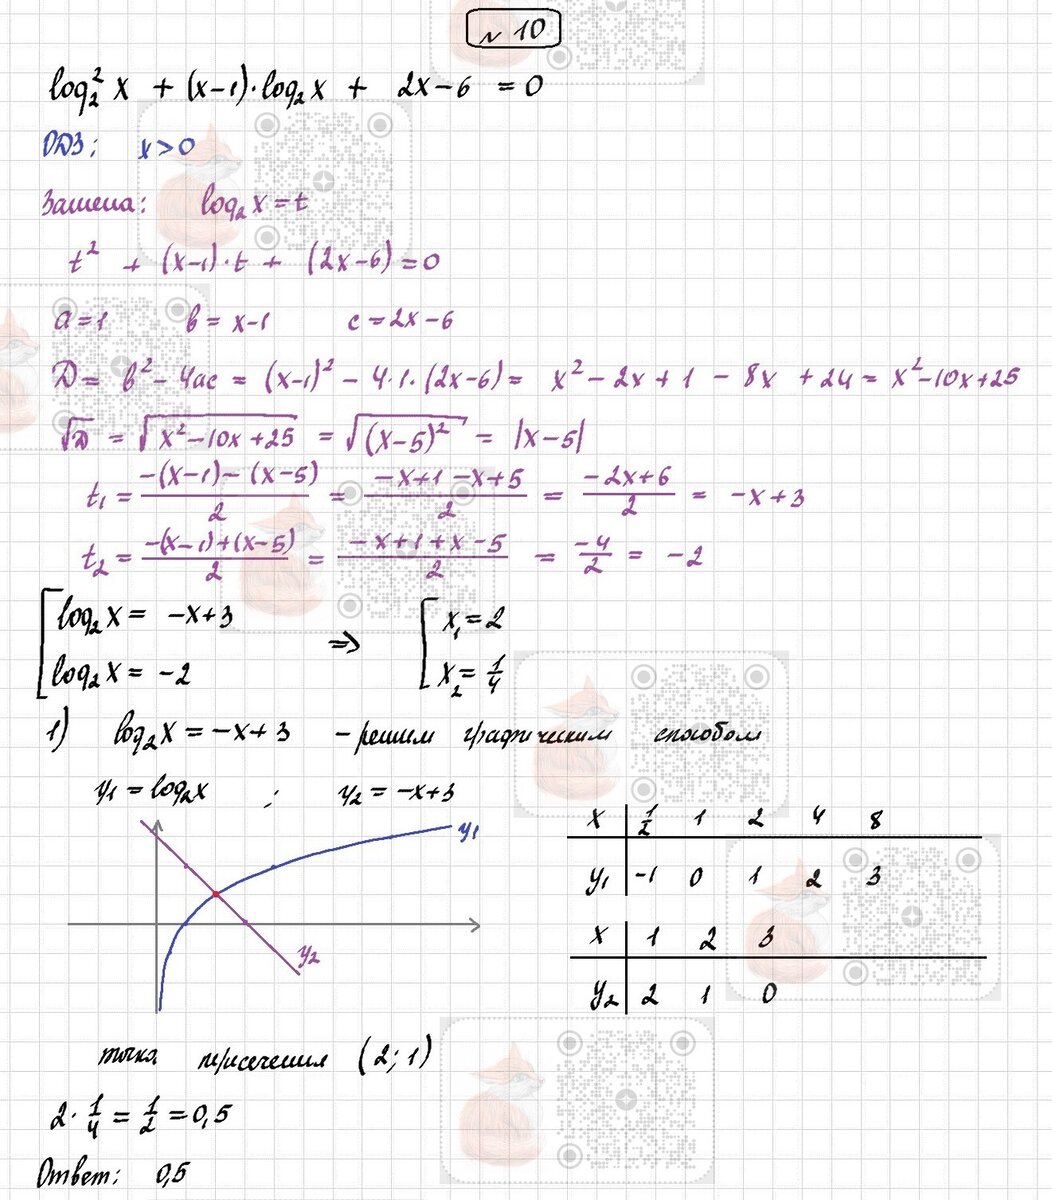 № 10
log₂² x + (x-1)·log₂x + 2x-6 = 0
ОДЗ: x>0
Замена: log₂x = t
t² + (x-1)·t + (2x-6) = 0
a=1 b = x-1 c = 2x-6
D = b² - 4ac = (x-1)² - 4·1·(2x-6) = x² - 2x + 1 - 8x + 24 = x²-10x+25
√D = √(x²-10x+25) = √((x-5)²) = |x-5|
t₁ = (-(x-1)-(x-5))/2 = (-x+1-x+5)/2 = (-2x+6)/2 = -x+3
t₂ = (-(x-1)+(x-5))/2 = (-x+1+x-5)/2 = -4/2 = -2
[ log₂x = -x+3 ⇒ [ x₁ = 2
log₂x = -2 x₂ = 1/4
1) log₂x = -x+3 - решим графическим способом
y₁ = log₂x ; y₂ = -x+3
y₁
y₂
x | 1/2 1 2 4 8
y₁ | -1 0 1 2 3
x | 1 2 3
y₂ | 2 1 0
точка пересечения (2; 1)
2· 1/4 = 1/2 = 0,5
Ответ: 0,5